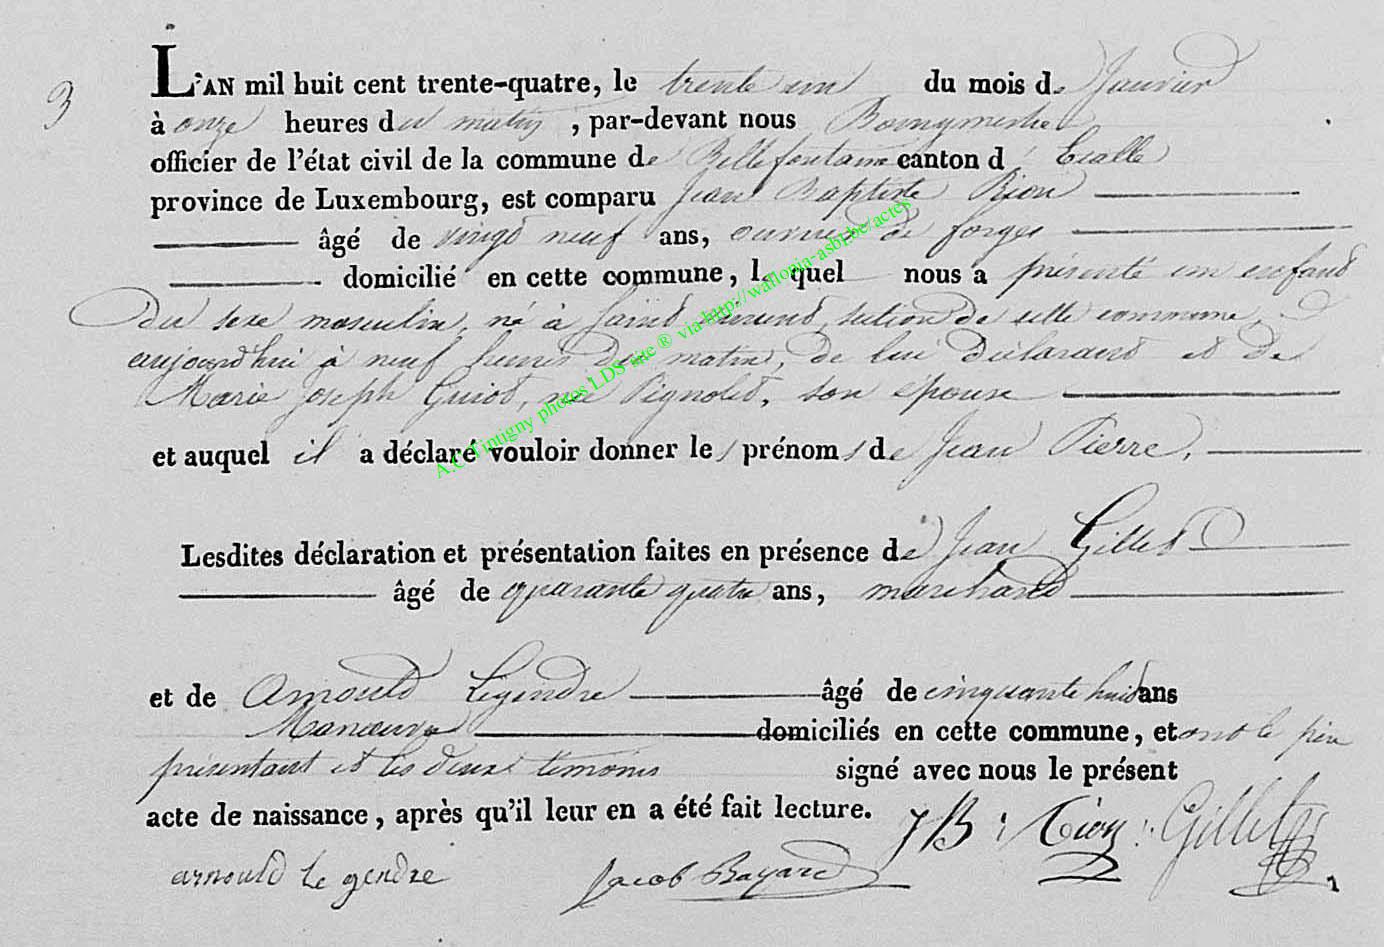 3
L'AN mil huit cent trente-quatre, le trente un du mois de Janvier
à onze heures du matin, par-devant nous Bourgmestre
officier de l'état civil de la commune de Bellefontaine canton d'Etalle
province de Luxembourg, est comparu Jean Baptiste
âgé de vingt neuf ans, ouvrier de forges
domicilié en cette commune, lequel nous a présenté un enfant
du sexe masculin, né à Saint section de cette commune,
aujourd'hui à neuf heures du matin, de lui déclarant et de
Marie Joseph Guiot, née Pignolet, son épouse
et auquel il a déclaré vouloir donner les prénoms de Jean Pierre,
Lesdites déclaration et présentation faites en présence de Jean Gillet
âgé de quarante quatre ans, marchand
et de Arnould Legendre âgé de cinquante huit ans
Manoeuvre domiciliés en cette commune, et ont le père
présentant et les deux témoins signé avec nous le présent
acte de naissance, après qu'il leur en a été fait lecture.
JB: Gillet
arnould Le gendre Jacob Bayard
A.c Tintigny photos LDS site ® via http://wallonia-asbl.be/actes